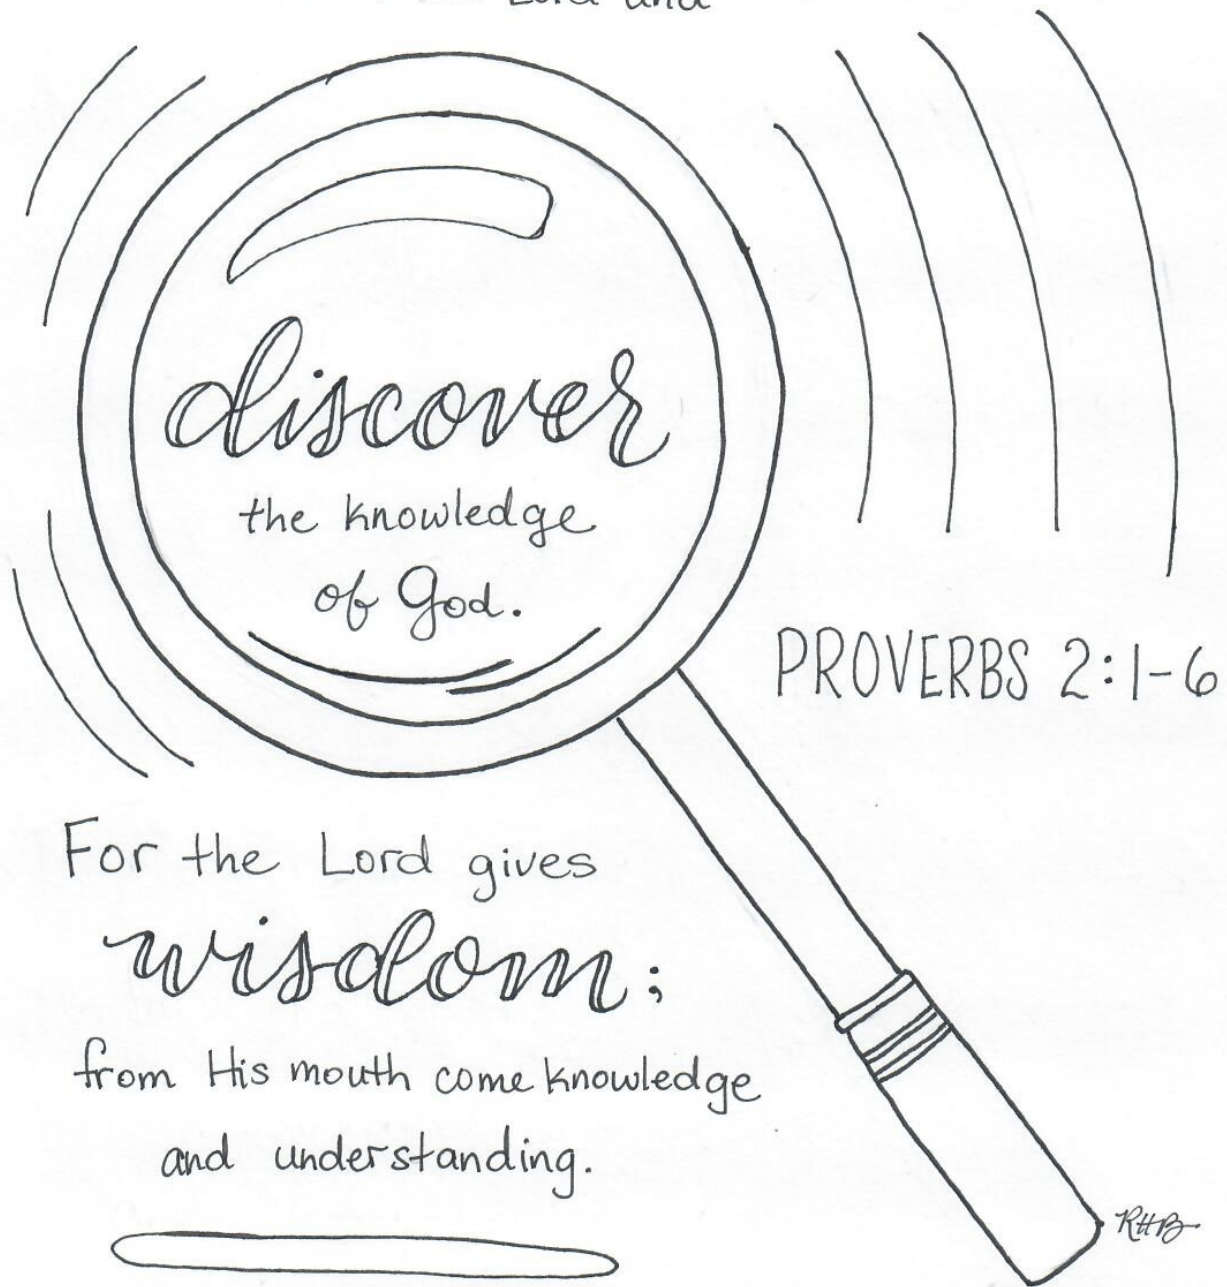 Lord and
discover
the knowledge
of God.
PROVERBS 2:1-6
For the Lord gives
wisdom;
from His mouth come knowledge
and understanding.
RHB